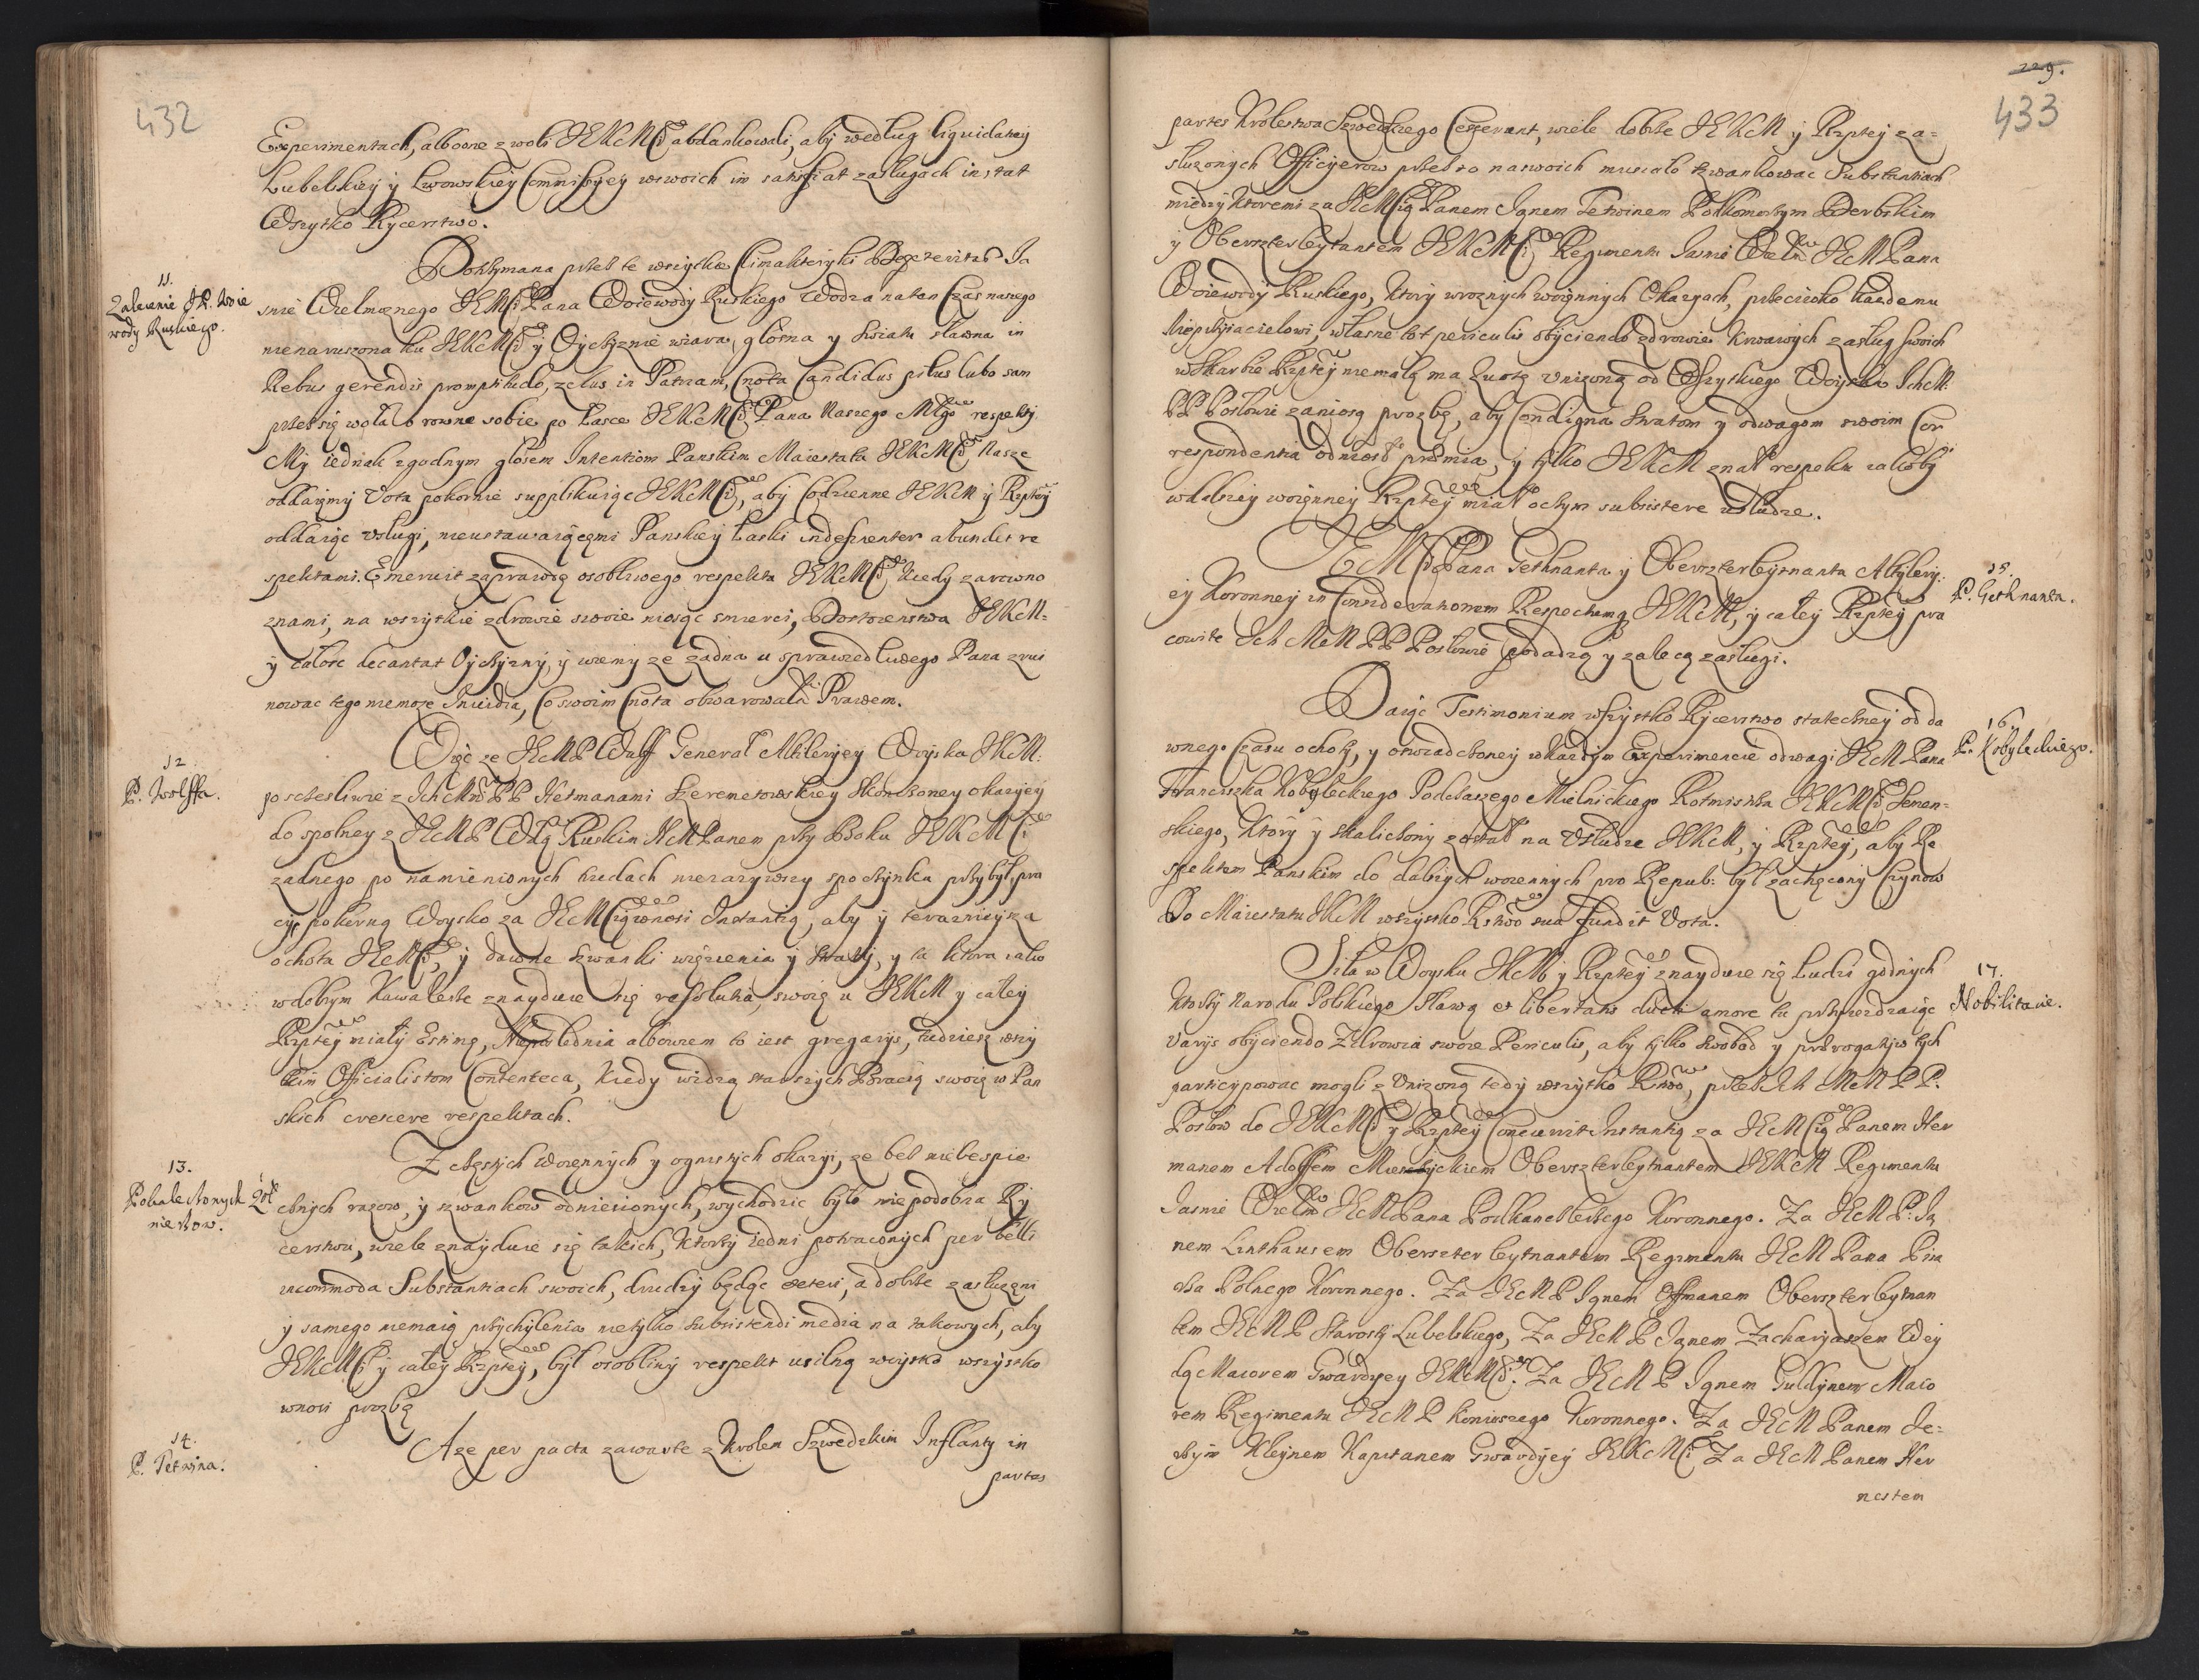 432
Experimentach, alboone z woli JEKcMCi abdankowali, aby według liquidatiey
Lubelskiey y Lwowskiey Commissyey wswoich im satisfiat zasługach instat
Wszytko Rycerstwo.
11.
Zalecenie JP. Woie
wody Ruskiego.
Dotrzymana przes te wszytkie Climakteryki Ia
snie Wielmoznego JEMCi Pana Woiewody Ruskiego Wodza natan Czas naszego
nienaruszona ku JEKcMCi y Oyczyznie wiara, głosna y swiatu sławna in
Rebus gerendis promptitudo, zelus in Patriam, Cnota Candidus lubo sam
przes się woła o rowne sobie po Łasce JEKcMCi Pana Naszego Młgo respekty
My iednak zgodnym głosem Intentiom Panskim Maiestatu JEKcMCi Nasze
oddaiemy Vota pokornie supplikuiąc JEKcMCi, aby Codzienne JEKcM y Rzptey
oddaiąc usługi, nieustawaiącemi Panskiey Łaski indesinenter abundet re
spektami. Emeruit zaprawdę osobliwego respektu JEKcMCi, kiedy zarowno
znami, na wszytkie zdrowie swoie niosąc smierci, Dostoienstwa JEKcM:
y całosc decantat Oyczyzny, y wiemy ze zadna u sprawiedliwego Pana zrui
nowac tego niemoze Inuidia, Co swoim Cnota obwarowała Prawem.
12.
P. Wolffa.
Więc ze JEcMP Wulff Generał Artileryey Woyska JKcM:
poscześliwie z IchcMci PP Hetmanami Szeremetowskiey skonczoney okazyey
do spolney z JEcMP Wdą Ruskim NcM Panem przy Boku JEKcMCi
zadnego po namienionych trudach niezazywszy spoczynku przybył, pra
cy, pokorną Woysko za JEcMCią wnosi Instantią, aby y terazniejsza
ochota JEcMCi, y dawne szwanki więzienia y straty, y ta ktora iako
wdobrym Kawalerze znayduie się resolutia, swoię u JEKcM y całey
Rzptey miały Estimę, Nieposlednia albowiem to iest gregarys, tudziesz wszy
tkim Officialistom Contenteca, kiedy widzą starszych Bracią swoię w Pan
skich crescere respektach.
13.
Pokaleczonych Zoł
nierzow.
Z Częstych Woiennych y ognistych okazyi, ze bes niebespie
cznych razow, y szwankow odniesionych, wychodzic było niepodobna Ry
cerstwu, wiele znayduie się takich, ktorzy iedni potraconych per belli
incommoda Substantiach swoich, drudzy będąc exteri, a dobrze zasłuzeni
y samego niemaią przychylenia nietylko subsistendi media na takowych, aby
JEKcMCi y całey Rzptey, był osobliwy respekt usilną woysko wszystko
wnosi prozbę
14.
P. Tetwina.
A ze per pacta zawarte z Krolem Szwedzkim Inflanty in
partes
229.
433
partes Krolestwa Szwedzkiego Cesserunt, wiele dobrze JEKcM y Rzptey za=
słuzonych Officyerow przes to naswoich musiało szwankowac Substantiach
między ktoremi za JEcMCią Panem Ianem Tetwinem Podkomorzym Derbskim
y Oberszterleytantem JEKcMCi Regimentu Iasnie Wielm JEcM Pana
Woiewody Ruskiego, ktory wroznych woiennych Okazyach, przeciwko kazdemu
Nieprzyiacielowi, własne tot periculis obijciendo zdrowie krwawych zasług swoich
wskarbie Rzptey niemałą ma quotę unizoną od Wszytkiego Woyska IchcM:
PP Posłowie zaniosą prozbę, aby Condigna stratom y odwagom swoim Cor
respondentia odniosł prćmia, y tylko JEKcM znał respektu iakoby
wdalszey woienney Rzptey miał oczym subsistere usłudze.
15.
P. Gethnanta.
JEMCi Pana Gethnanta y Oberszterleytnanta Artylery:
ey Koronney in Considerationem Respectumq JEKcM, y całey Rzptey pra
cowite Ich McM PP Posłowie podadzą y zalecą zasługi.
16.
P. Kobyleckiego.
Daiąc Testimonium wszystko Rycerstwo stateczney od da
wnego Czasu ochoty, y oswiadczoney wkazdym Experimencie odwagi JEcM Pana
Franciszka Kobyleckiego Podczaszego Mielnickiego Rotmistrza JEKcMCi Semen=
skiego, Ktory y skaliczony został na Usłudze JEKcM, y Rzptey, aby Re
spektem Panskim do dalszych woiennych pro Repub: był zachęcony Czynow
Do Maiestatu JKcM wszystko Rstwo sua fundit Vota.
17.
Nobilitacie.
Siła w Woysku JKcM y Rzptey znayduie się Ludzi godnych
ktorzy Narodu Polskiego sławą et libertatis ducti amore tu przyiezdzaiąc
varys obijciendo Zdrowia swoie Periculis, aby tylko swobod y prćrogatyw tych
participowac mogli z Unizoną tedy wszytko Rstwo, przes Ich McM PP.
Posłow do JEKcMCi y Rzptey Concurrit Instantią za JEcMCią Panem Her
manem Adolfem Oberszterleytnantem JEKcM Regimentu
Iasnie Wielm JEcM Pana Podkanclerzego Koronnego. Za JEcMP: Ia
nem Linthausem Oberszterleytnantem Regimentu JEcM Pana Pisa
rza Polnego Koronnego. Za JEcMP Ianem Offmanem Oberszterleytnan
tem JEcMP Starosty Lubelskiego, Za JEcMP Ianem Zacharyaszem Wey
dą Maiorem Gwardyey JEKcMCi. Za JEcMP Ianem Guldynem Maio
rem Regimentu JEcMP Koniuszego Koronnego. Za JEcM Panem Je=
rzym Kleynem Kapitanem Gwardyey JEKcMCi Za JEcM Panem Her
nestem